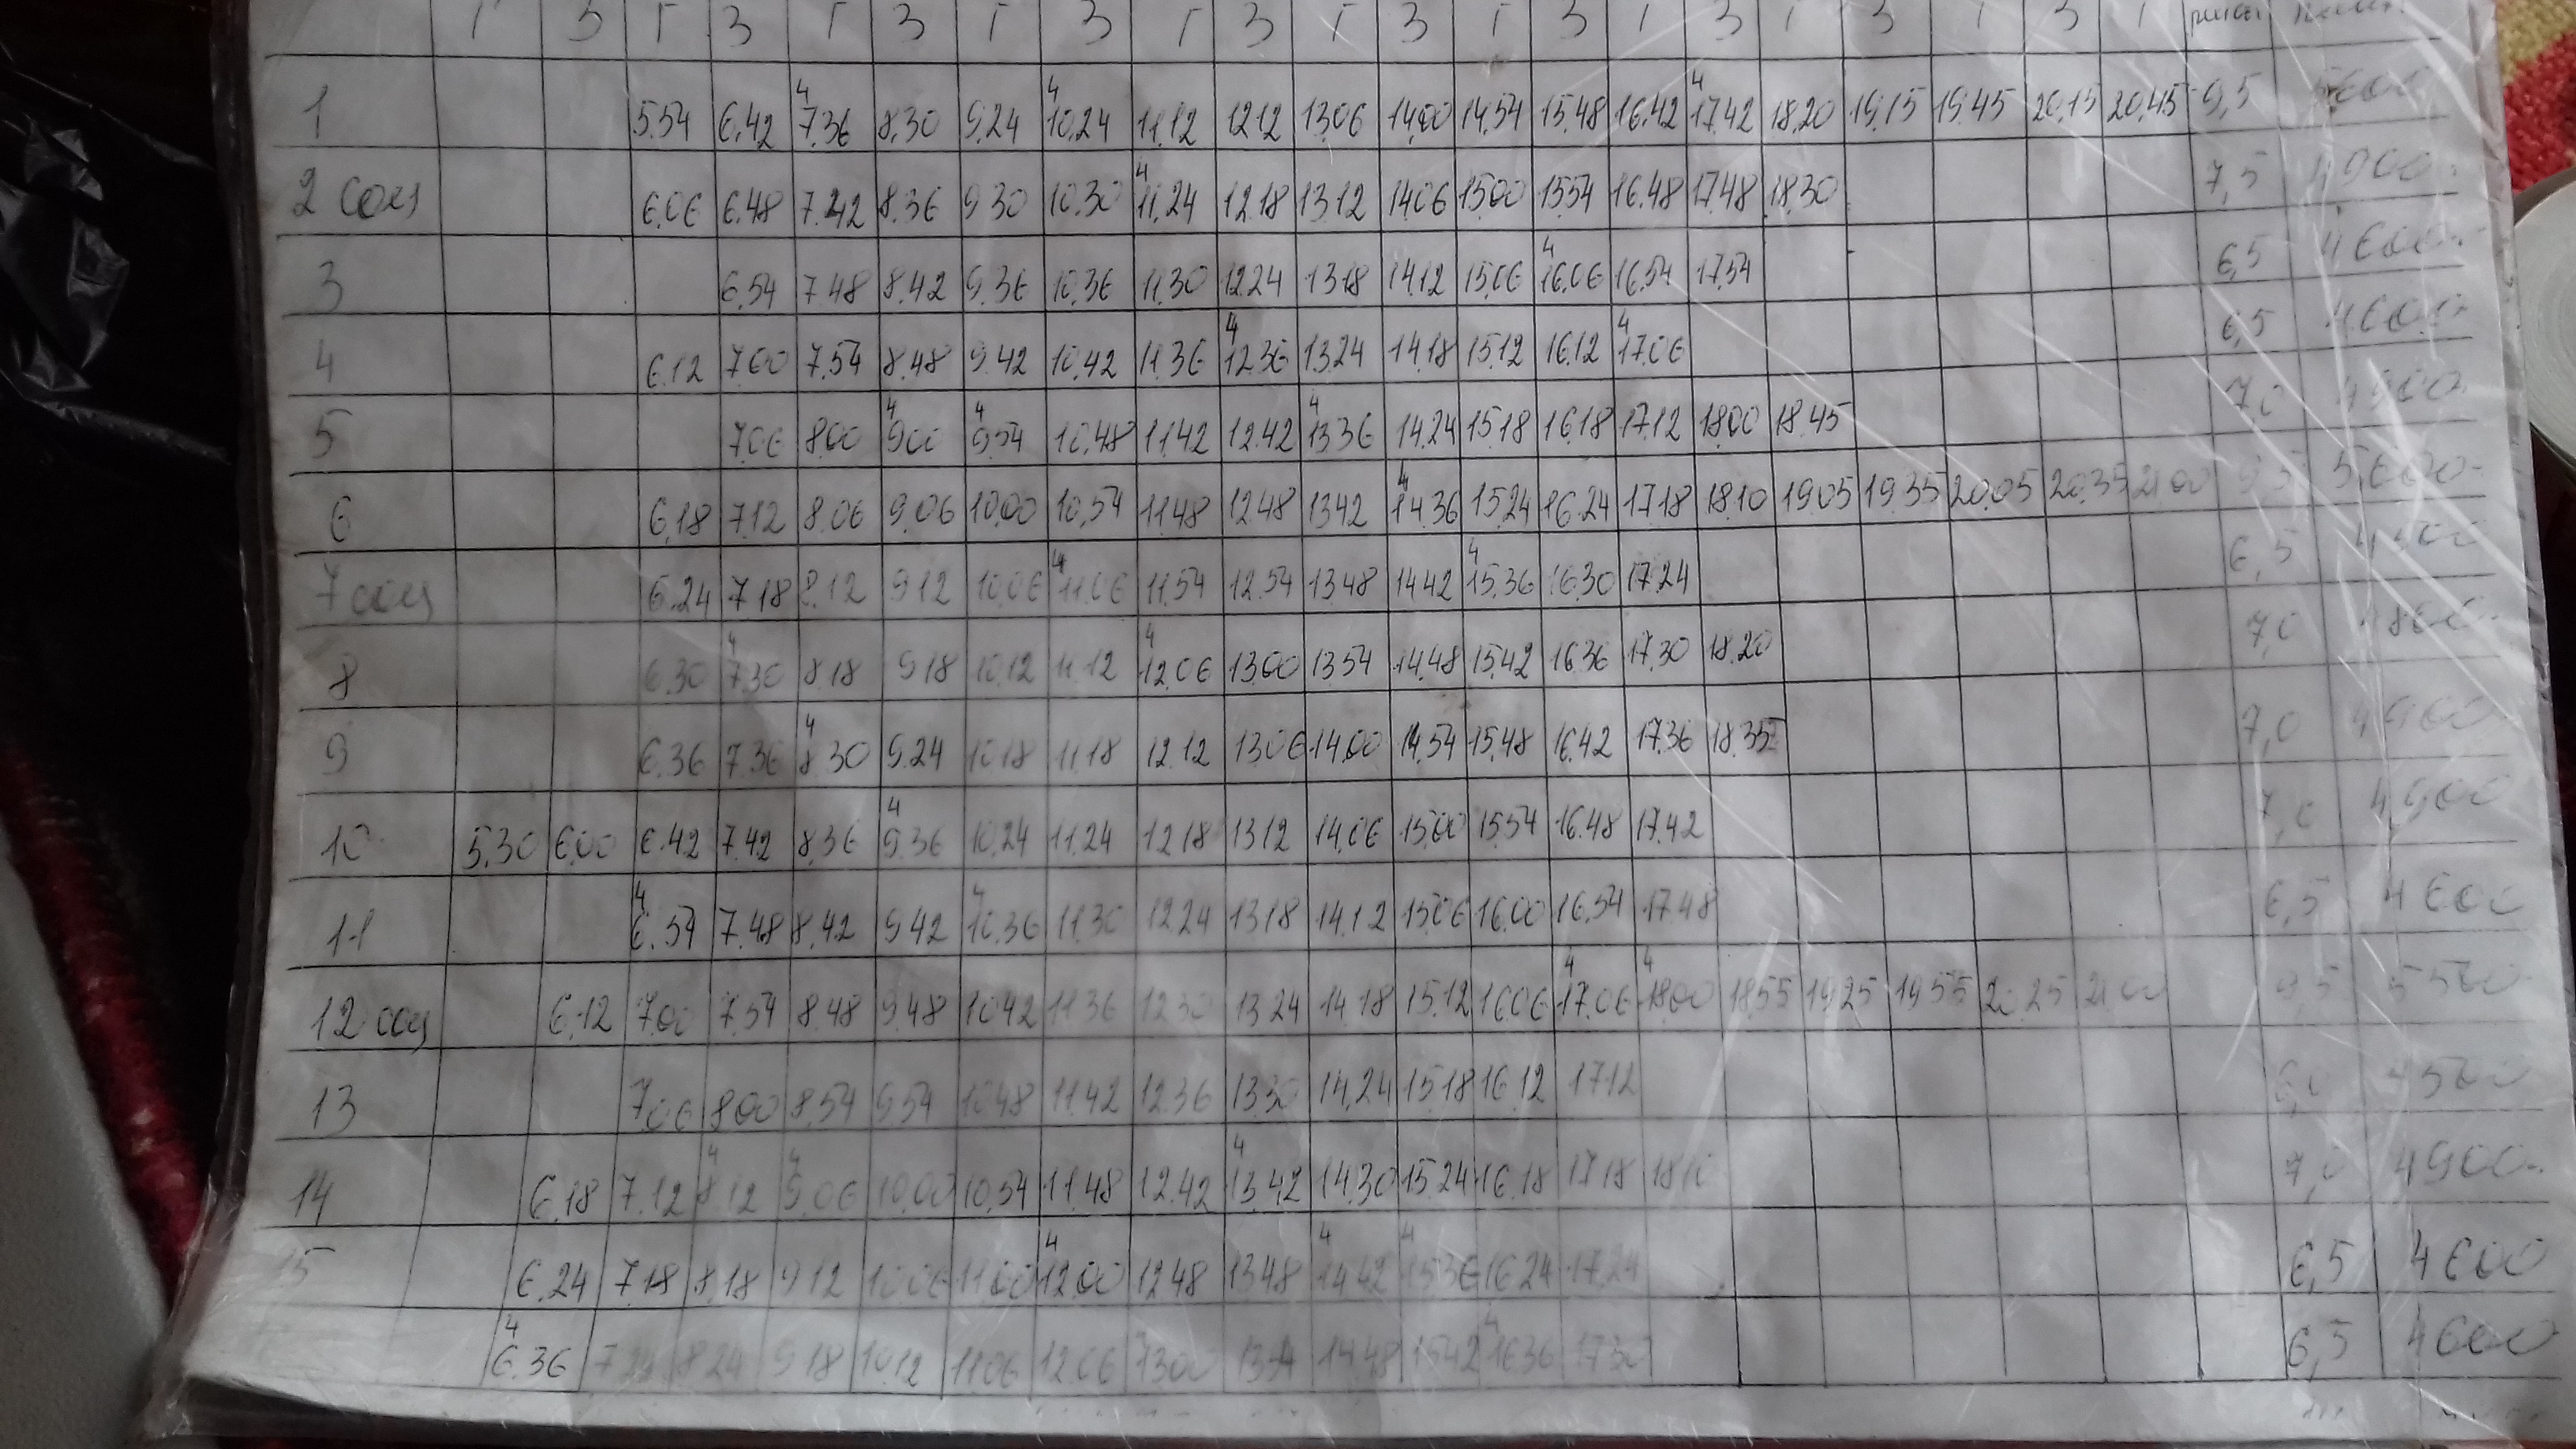 Г З Г З Г З Г З Г З Г З Г З Г З Г З Г З Г рейсы
1 5.54 6.42 4 7.36 8.30 9.24 4 10.24 11.12 12.12 13.06 14.00 14.54 15.48 16.42 4 17.42 18.20 19.15 19.45 20.15 20.45 9,5 5600
2 соц 6.06 6.48 7.42 8.36 9.30 10.30 4 11.24 12.18 13.12 14.06 15.00 15.54 16.48 17.48 18.30 7,5 4900
3 6.54 7.48 8.42 9.36 10.36 11.30 12.24 13.18 14.12 15.06 4 16.06 16.54 17.54 6,5 4600
4 6.12 7.00 7.54 8.48 9.42 10.42 11.36 4 12.36 13.24 14.18 15.12 16.12 4 17.06 6,5 4600
5 7.06 8.00 4 9.00 4 9.54 10.48 11.42 12.42 4 13.36 14.24 15.18 16.18 17.12 18.00 18.45 7,0 4900
6 6.18 7.12 8.06 9.06 10.00 10.54 11.48 12.48 13.42 4 14.36 15.24 16.24 17.18 18.10 19.05 19.35 20.05 20.35 21.00 9,5 5600
7 соц 6.24 7.18 8.12 9.12 10.06 4 11.06 11.54 12.54 13.48 14.42 4 15.36 16.30 17.24 6,5
8 6.30 4 7.30 8.18 9.18 10.12 11.12 4 12.06 13.00 13.54 14.48 15.42 16.36 17.30 18.20 7,0
9 6.36 7.36 4 8.30 9.24 10.18 11.18 12.12 13.06 14.00 14.54 15.48 16.42 17.36 18.35 7,0 4900
10 5.30 6.00 6.42 7.42 8.36 4 9.36 10.24 11.24 12.18 13.12 14.06 15.00 15.54 16.48 17.42 7,0 4900
11 4 6.54 7.48 8.42 9.42 4 10.36 11.30 12.24 13.18 14.12 15.06 16.00 16.54 17.48 6,5 4600
12 соц 6.12 7.00 7.54 8.48 9.48 10.42 11.36 12.30 13.24 14.18 15.12 16.06 4 17.06 4 18.00 18.55 19.25 19.55 20.25 21.00 9,5 5500
13 7.06 8.00 8.54 9.54 10.48 11.42 12.36 13.30 14.24 15.18 16.12 17.12 6,0 4500
14 6.18 7.12 4 8.12 4 9.06 10.00 10.54 11.48 12.42 4 13.42 14.30 15.24 16.18 17.18 18.10 7,0 4900
15 6.24 7.18 8.18 9.12 10.06 11.00 4 12.00 12.48 13.48 4 14.42 4 15.36 16.24 17.24 6,5 4600
4 6.36 7.24 8.24 9.18 10.12 11.06 12.06 13.00 13.54 14.48 15.42 4 16.36 17.30 6,5 4600